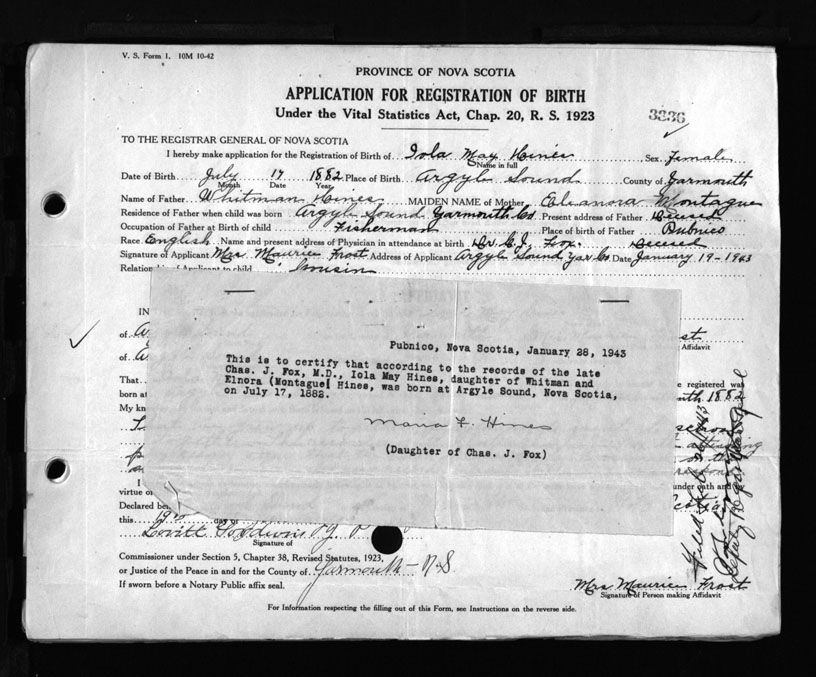 V. S. Form 1. 10M 10-42
PROVINCE OF NOVA SCOTIA
APPLICATION FOR REGISTRATION OF BIRTH
Under the Vital Statistics Act, Chap. 20, R. S. 1923
3336
TO THE REGISTRAR GENERAL OF NOVA SCOTIA
I hereby make application for the Registration of Birth of Iola May Hines Sex Female
Name in full
Date of Birth July 17 1882 Place of Birth Argyle Sound County of Yarmouth
Month Date Year
Name of Father Whitman Hines MAIDEN NAME of Mother Eleanora Montague
Residence of Father when child was born Argyle Sound Yarmouth Co Present address of Father
Occupation of Father at Birth of child Fisherman Place of birth of Father Pubnico
Race English Name and present address of Physician in attendance at birth Dr. C. J. Fox
Signature of Applicant Mrs Maurice Frost Address of Applicant Argyle Sound Yar Co Date January 19-1943
of Applicant to child Cousin
IN
of
Affidavit
of
That
registered was
born at 1882
My kn
virtue of under oath and by
Declared be
this day of
Pubnico, Nova Scotia, January 28, 1943
This is to certify that according to the records of the late
Chas. J. Fox, M.D., Iola May Hines, daughter of Whitman and
Elnora (Montague[ Hines, was born at Argyle Sound, Nova Scotia,
on July 17, 1882.
Maria F. Hines
(Daughter of Chas. J. Fox)
Lovitt Goodwin J P
Signature of
Commissioner under Section 5, Chapter 38, Revised Statutes, 1923,
or Justice of the Peace in and for the County of Yarmouth - N.S.
If sworn before a Notary Public affix seal.
Mrs Maurice Frost
Signature of Person making Affidavit
For Information respecting the filling out of this Form, see Instructions on the reverse side.